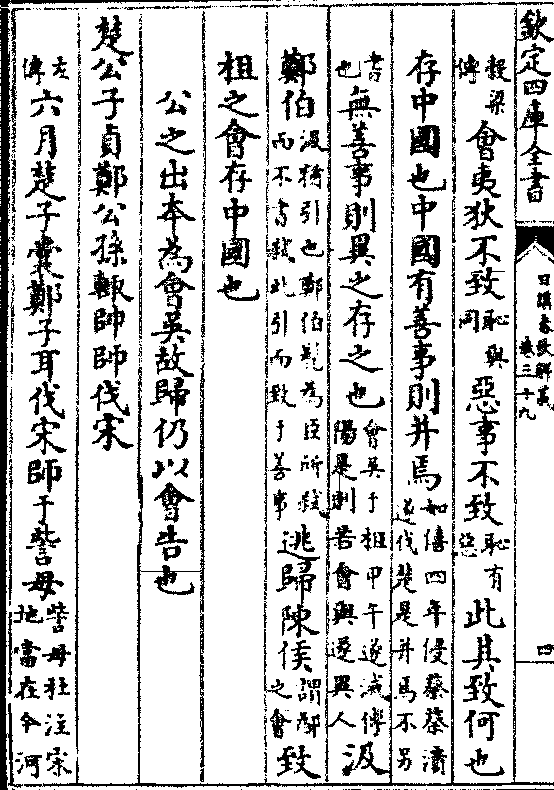 欽定四庫全書
日講春秋解義
卷三十九
四
穀梁傳會夷狄不致恥與同惡事不致恥有惡此其致何也
存中國也中國有善事則并焉如僖四年侵蔡蔡潰遂伐楚是并焉不另
書也無善事則異之存之也會吳于柤甲午遂滅傅陽是則若會與遂異人汲
鄭伯汲猶引也鄭伯髡為臣所弒而不書弒此引而致于善事逃歸陳侯謂鄬之會致
柤之會存中國也
公之出本為會吳故歸仍以會告也
楚公子貞鄭公孫輒帥師伐宋
左傳六月楚子囊鄭子耳伐宋師于訾母訾母杜注宋地當在今河